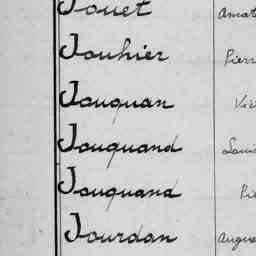 Jouet Amat
Jouhier Pierr
Jouquan Vic
Jouquand Loui
Jouquand Pie
Jourdan Augus